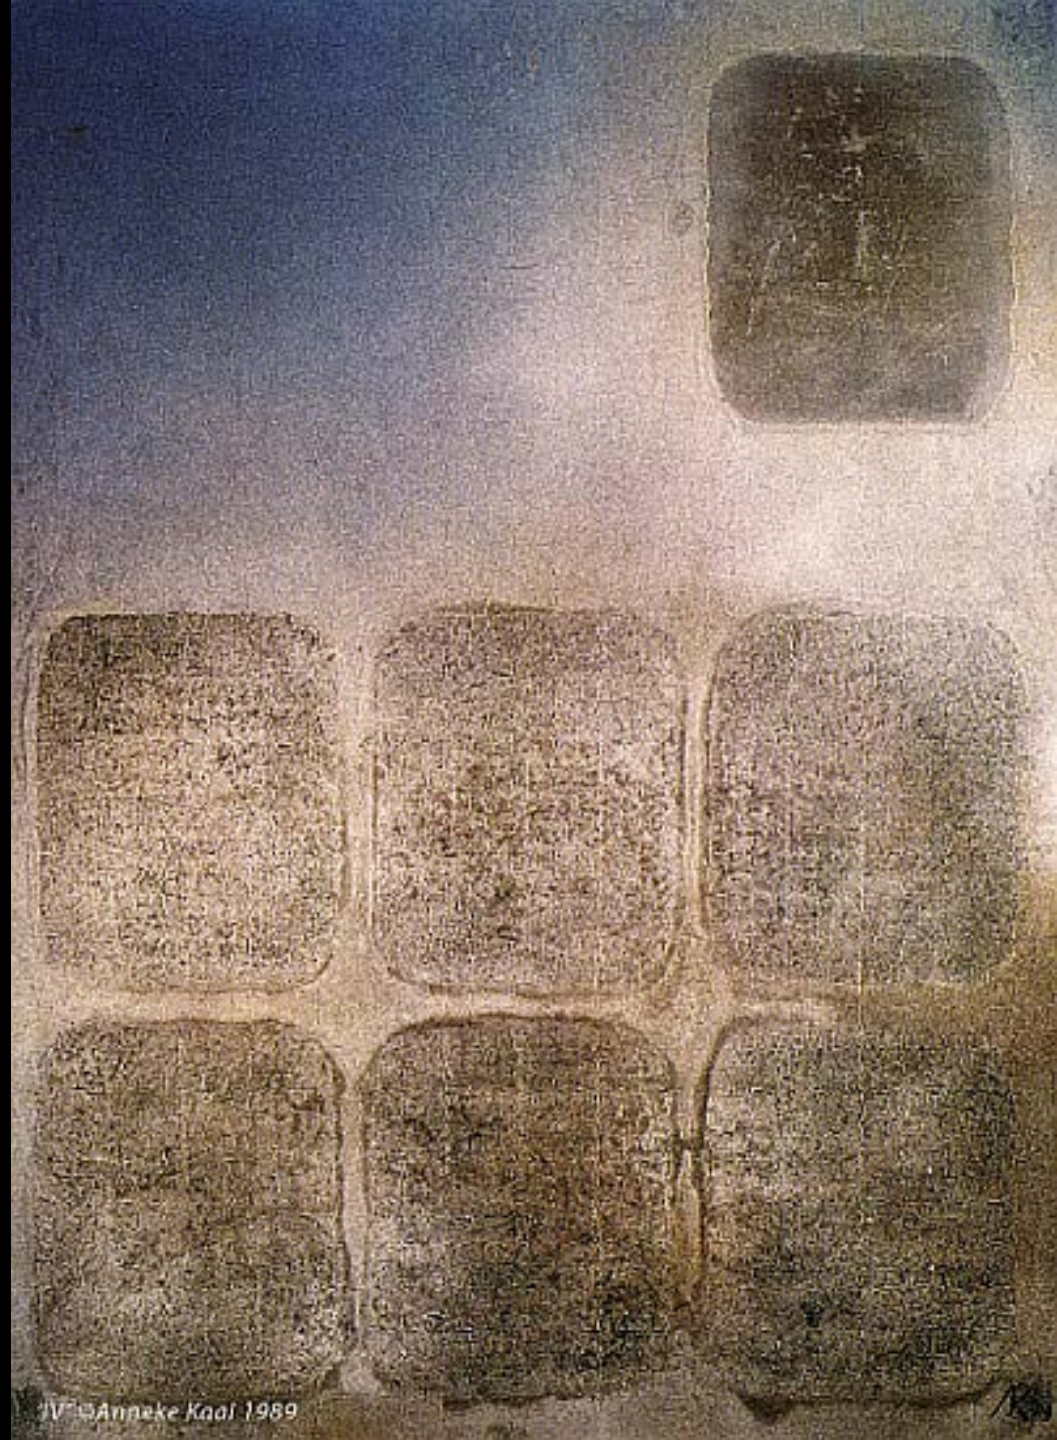 "IV" ©Anneke Kaal 1989